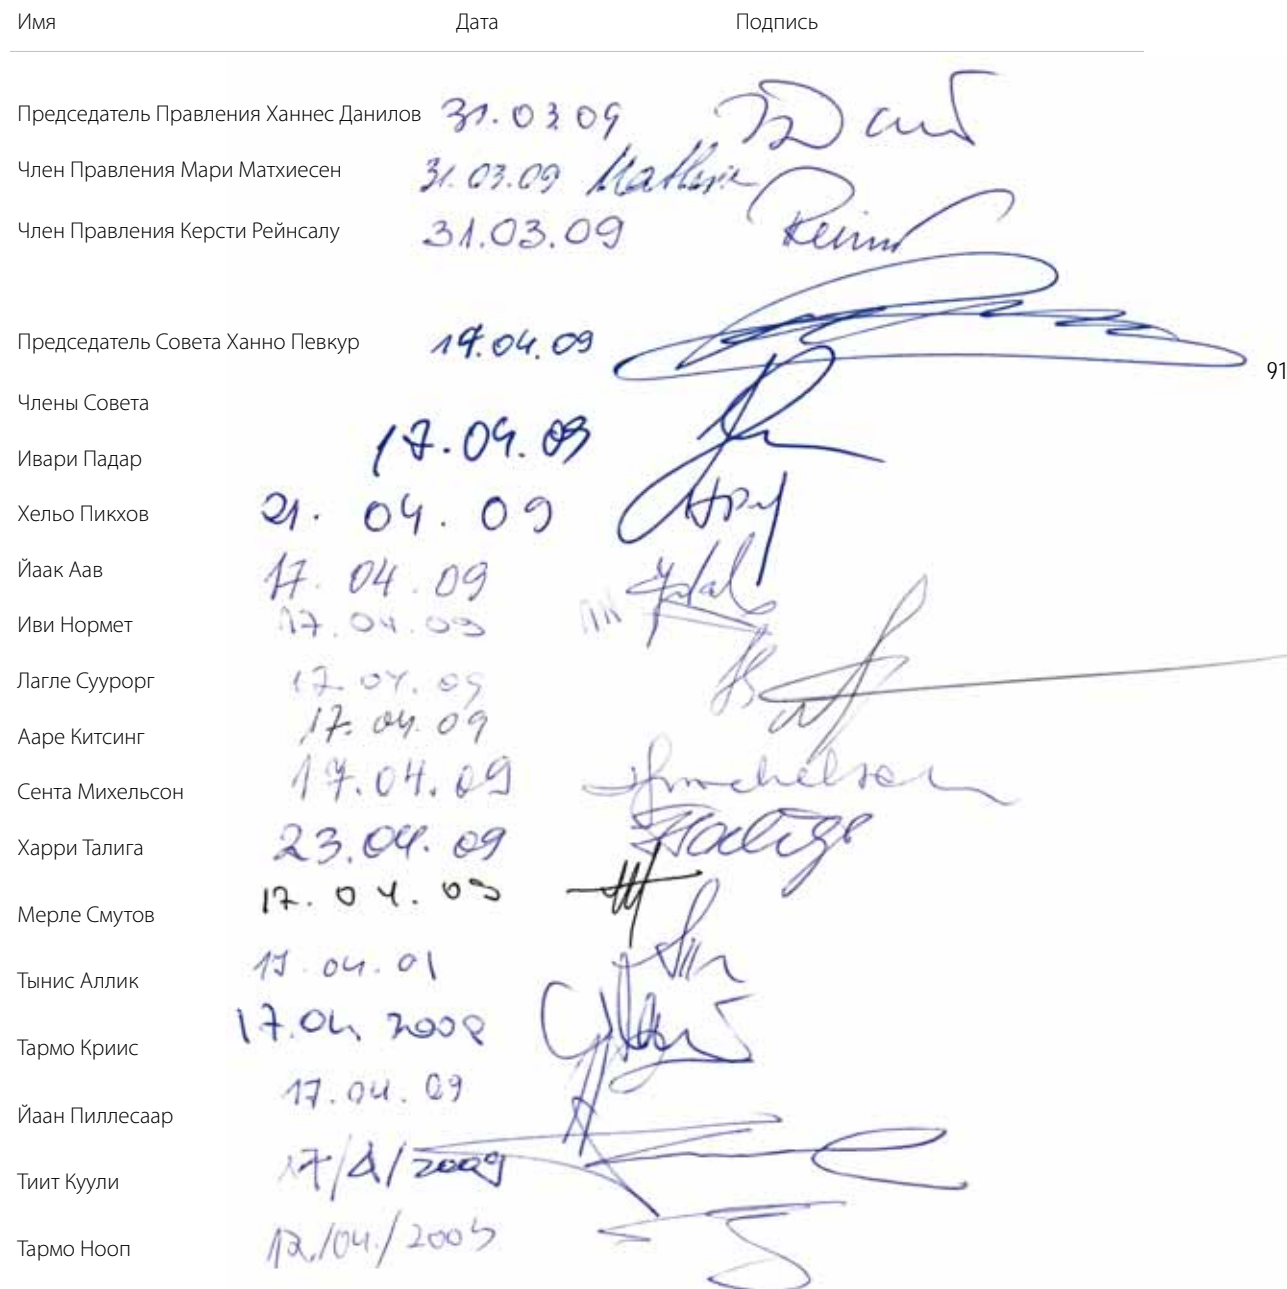 Имя Дата Подпись
Председатель Правления Ханнес Данилов 31.03.09
Член Правления Мари Матхиесен 31.03.09
Член Правления Керсти Рейнсалу 31.03.09
Председатель Совета Ханно Певкур 17.04.09
91
Члены Совета
Ивари Падар 17.04.09
Хельо Пикхов 21.04.09
Йаак Аав 17.04.09
Иви Нормет 17.04.09
Лагле Суурорг 17.04.09
Ааре Китсинг 17.04.09
Сента Михельсон 17.04.09
Харри Талига 23.04.09
Мерле Смутов 17.04.09
Тынис Аллик
Тармо Криис
Йаан Пиллесаар 17.04.09
Тиит Куули 17/4/2009
Тармо Нооп